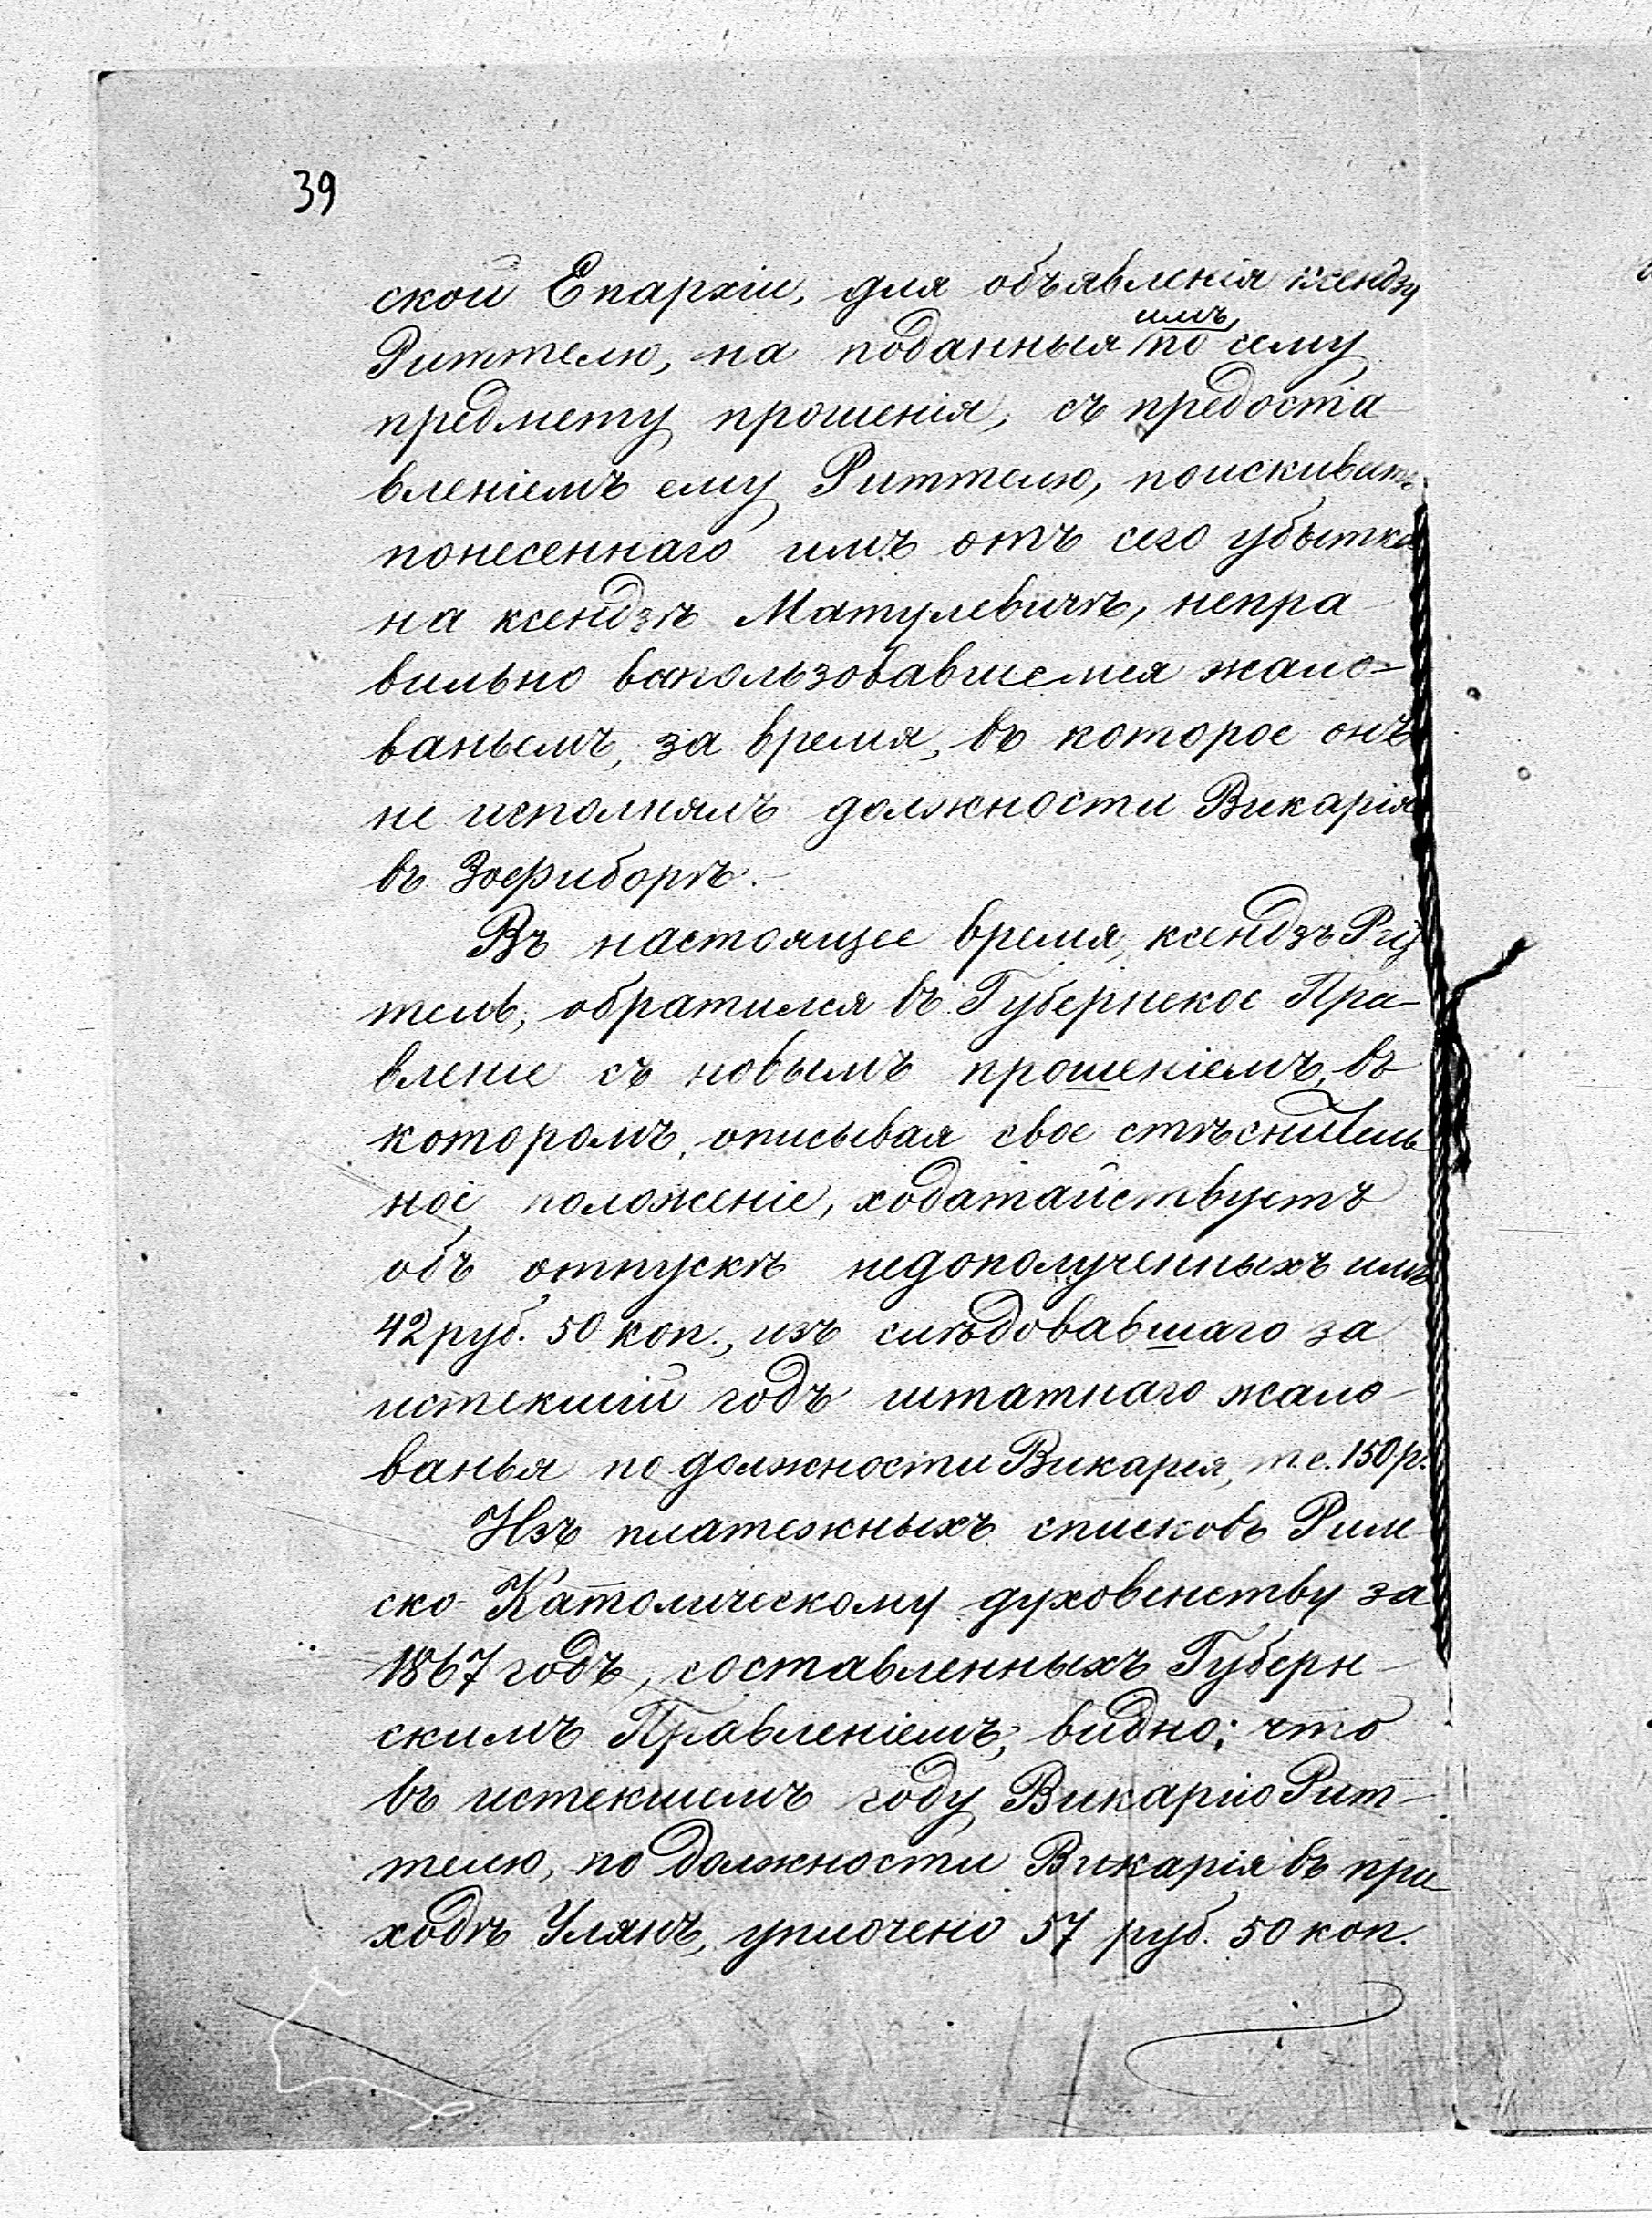 39
ской Епархіи, для объявленія ксендзу
Риттелю, на поданныя имъ по сему
предмету прошенія, съ предоста
вленіемъ ему Риттелю, поискивать
понесеннаго имъ отъ сего убытка
на ксендзѣ Матулевичѣ, непра
вильно воспользовавшемся жало-
ваньемъ, за время, въ которое онъ
не исполнялъ должности Викарія
въ Зосфиборѣ.
Въ настоящее время, ксендзъ Рит
тель, обратился въ Губернское Пра-
вленіе съ новымъ прошеніемъ, въ
которомъ, описывая свое стѣснитель
ное положеніе, ходатайствуетъ
объ отпускѣ недополученныхъ имъ
42 руб. 50 коп., изъ слѣдовавшаго за
истекшій годъ штатнаго жало-
ванья по должности Викарія, т.е. 150 р.
Изъ платежныхъ списковъ Рим
ско-Католическому духовенству за
1867 годъ, составленныхъ Губерн-
скимъ Правленіемъ, видно; что
въ истекшемъ году Викарію Рит-
телю, по должности Викарія въ при
ходѣ Улянъ, уплочено 57 руб. 50 коп.